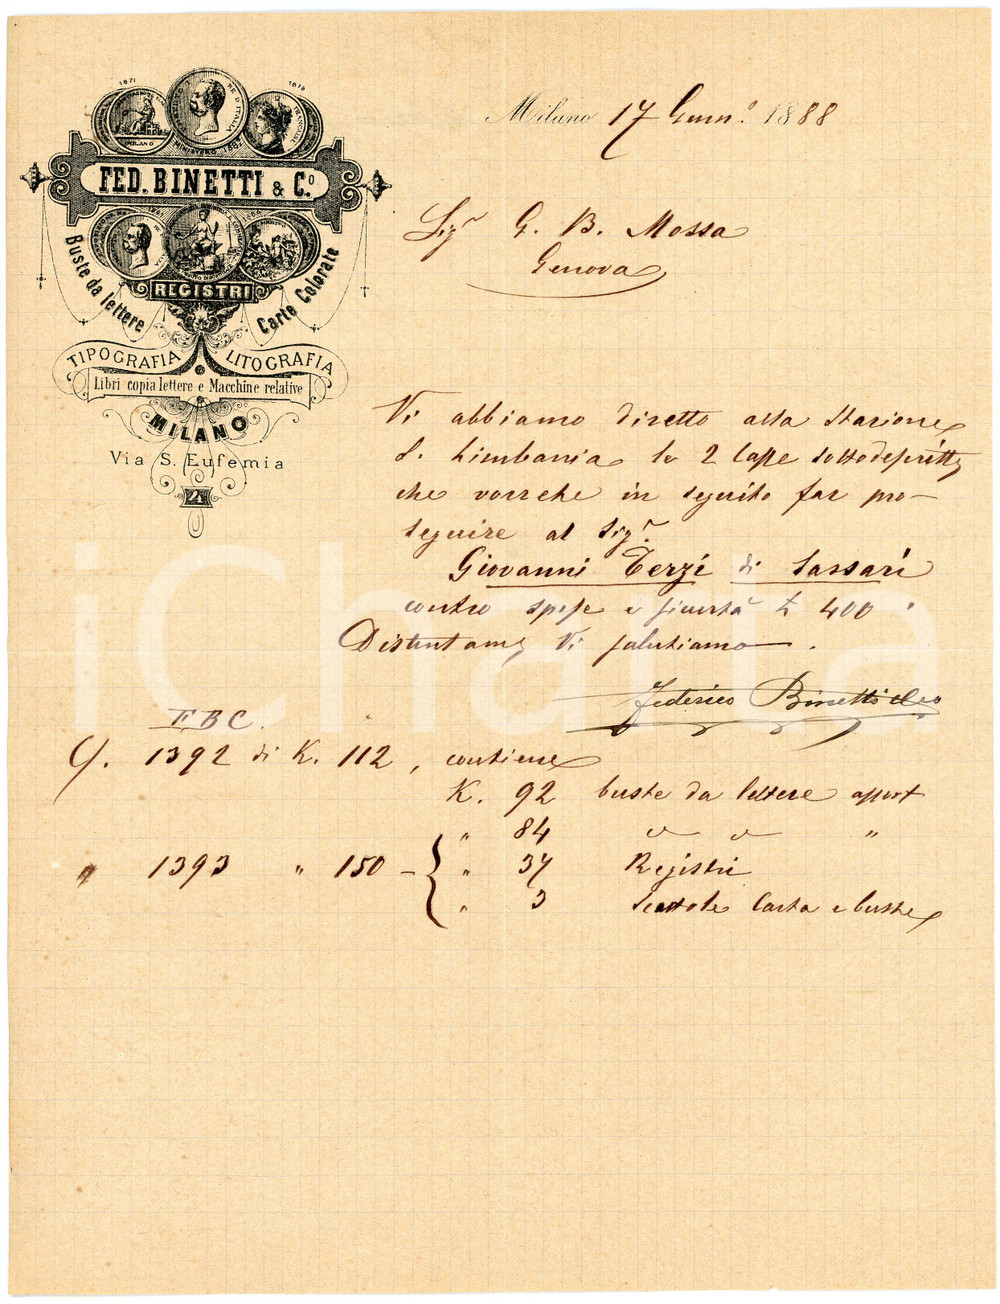 1871
1879
MILANO
RE D'ITALIA
FED. BINETTI & C.º
Buste da lettere
REGISTRI
Carte Colorate
TIPOGRAFIA LITOGRAFIA
Libri copialettere e Macchine relative
MILANO
Via S. Eufemia
4
Milano 17 Genn.º 1888
Sigr G. B. Mossa
Genova
Vi abbiamo diretto alla Stazione
S. Limbania le 2 Casse sottodescritte
che vorrete in seguito far pro-
seguire al Sigr
Giovanni Terzi di Sassari
contro spese e £ 400
Distintamte Vi salutiamo.
Federico Binetti & Co
F B C.
C/. 1392 di K. 112, contiene
K. 92 buste da lettere assort
" 84 " "  "
" 1393 " 150 - { " 37 Registri
" 3 Scatole Carta e buste
iCharta